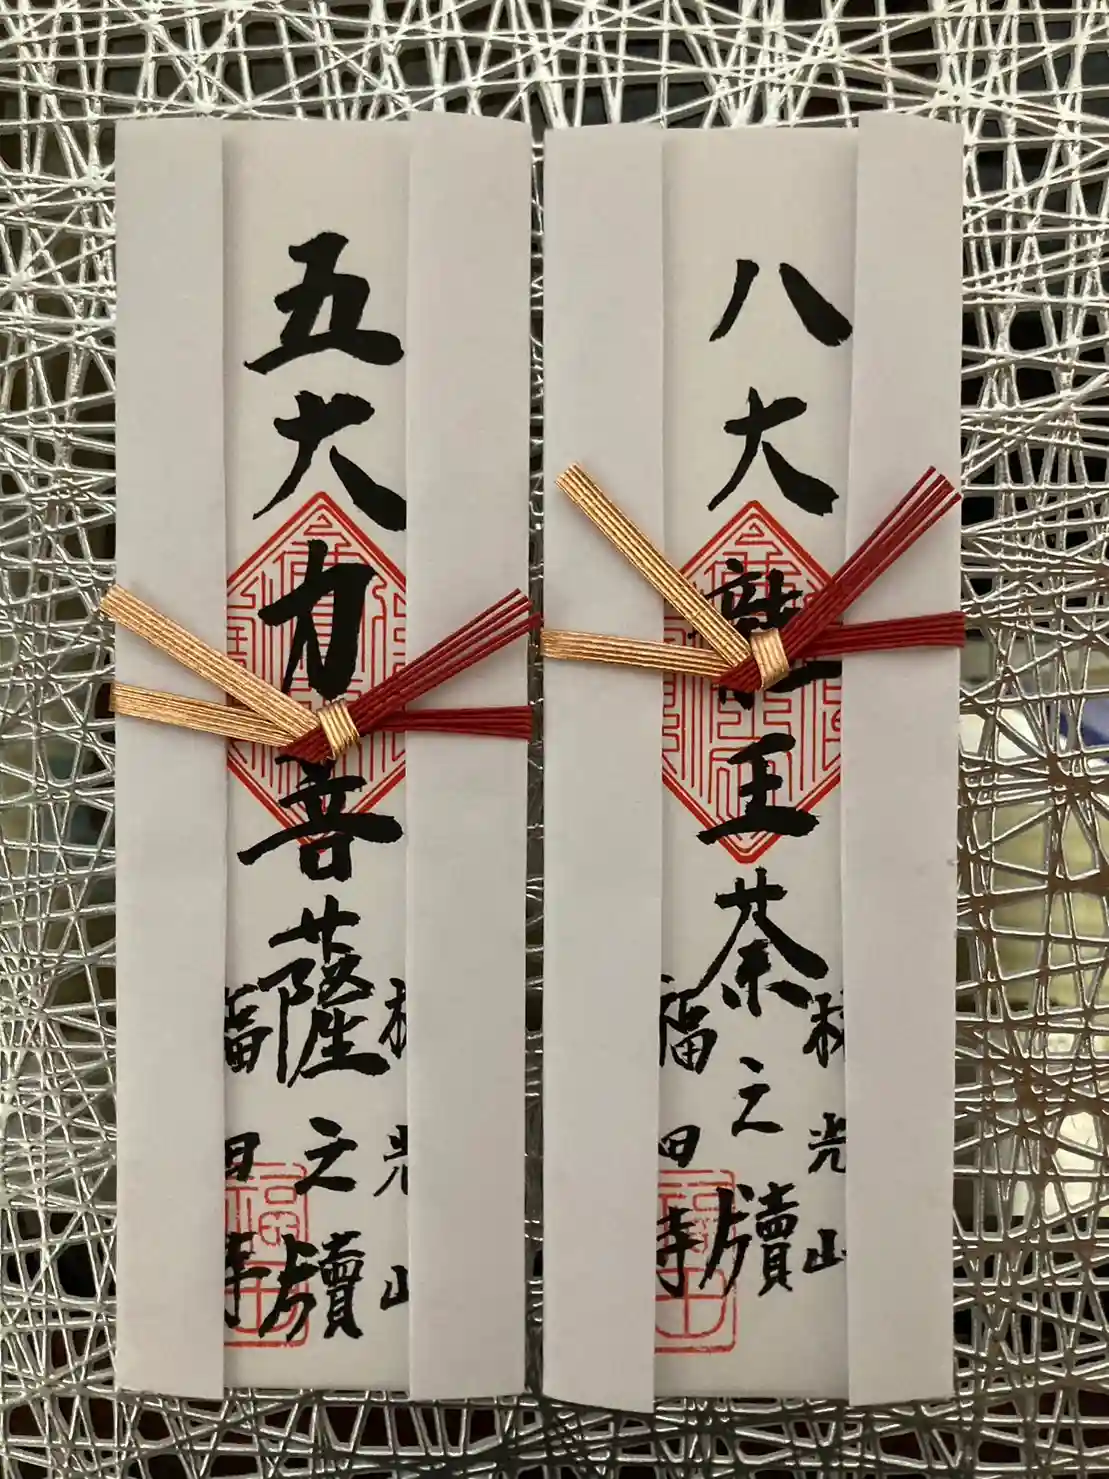 光山
八大龍王茶之牘
福田寺
福田
光山
五大力菩薩之牘
福田寺
福田